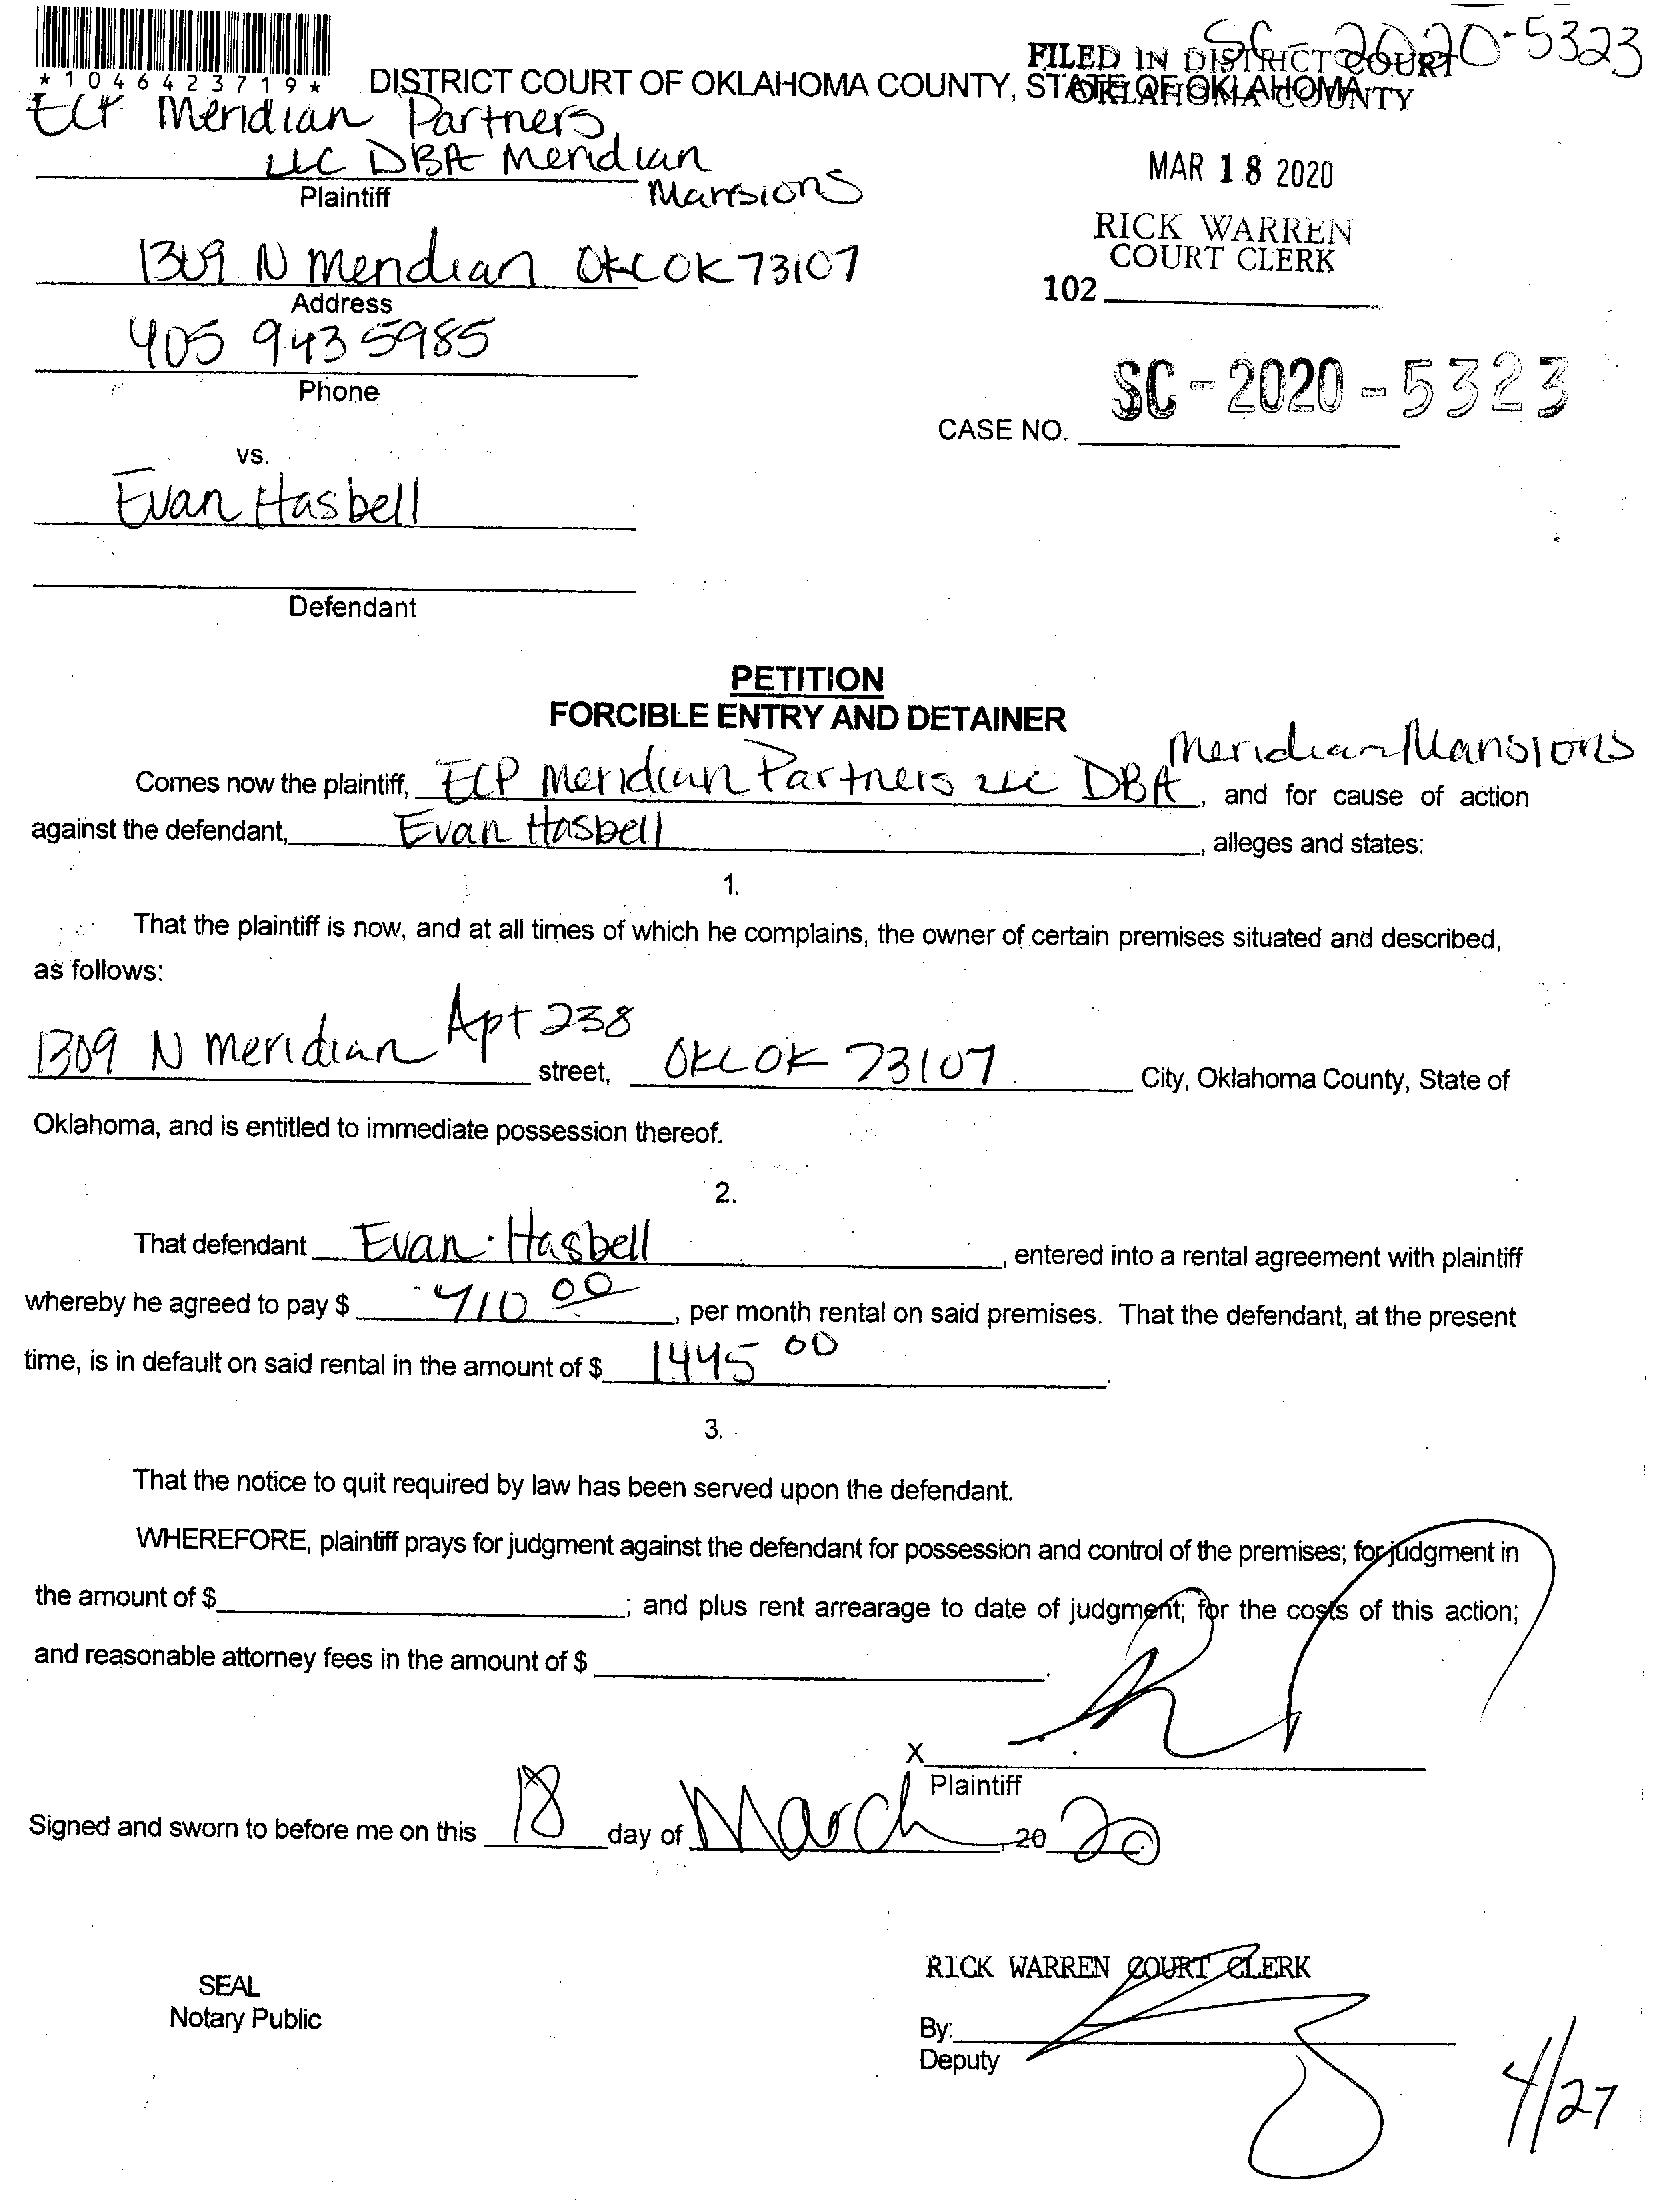 SC-2020-5323
FILED IN DISTRICT COURT
*1046423719*
DISTRICT COURT OF OKLAHOMA COUNTY, STATE OF OKLAHOMA
OKLAHOMA COUNTY
ECP Meridian Partners
LLC DBA Meridian
Mansions
Plaintiff
MAR 18 2020
RICK WARREN
COURT CLERK
1309 N Meridian OKC OK 73107
Address
102
405 943 5985
Phone
SC-2020-5323
CASE NO.
vs.
Evan Hasbell
Defendant
PETITION
FORCIBLE ENTRY AND DETAINER
Meridian Mansions
Comes now the plaintiff, ECP Meridian Partners LLC DBA, and for cause of action
against the defendant, Evan Hasbell, alleges and states:
1.
That the plaintiff is now, and at all times of which he complains, the owner of certain premises situated and described,
as follows:
1309 N Meridian Apt 238 street, OKC OK 73107 City, Oklahoma County, State of
Oklahoma, and is entitled to immediate possession thereof.
2.
That defendant Evan Hasbell, entered into a rental agreement with plaintiff
whereby he agreed to pay $ 710 00, per month rental on said premises. That the defendant, at the present
time, is in default on said rental in the amount of $ 1445 00.
3.
That the notice to quit required by law has been served upon the defendant.
WHEREFORE, plaintiff prays for judgment against the defendant for possession and control of the premises; for judgment in
the amount of $; and plus rent arrearage to date of judgment; for the costs of this action;
and reasonable attorney fees in the amount of $.
X
Plaintiff
Signed and sworn to before me on this 18 day of March, 20 20
RICK WARREN COURT CLERK
SEAL
Notary Public
By:
Deputy
4/27